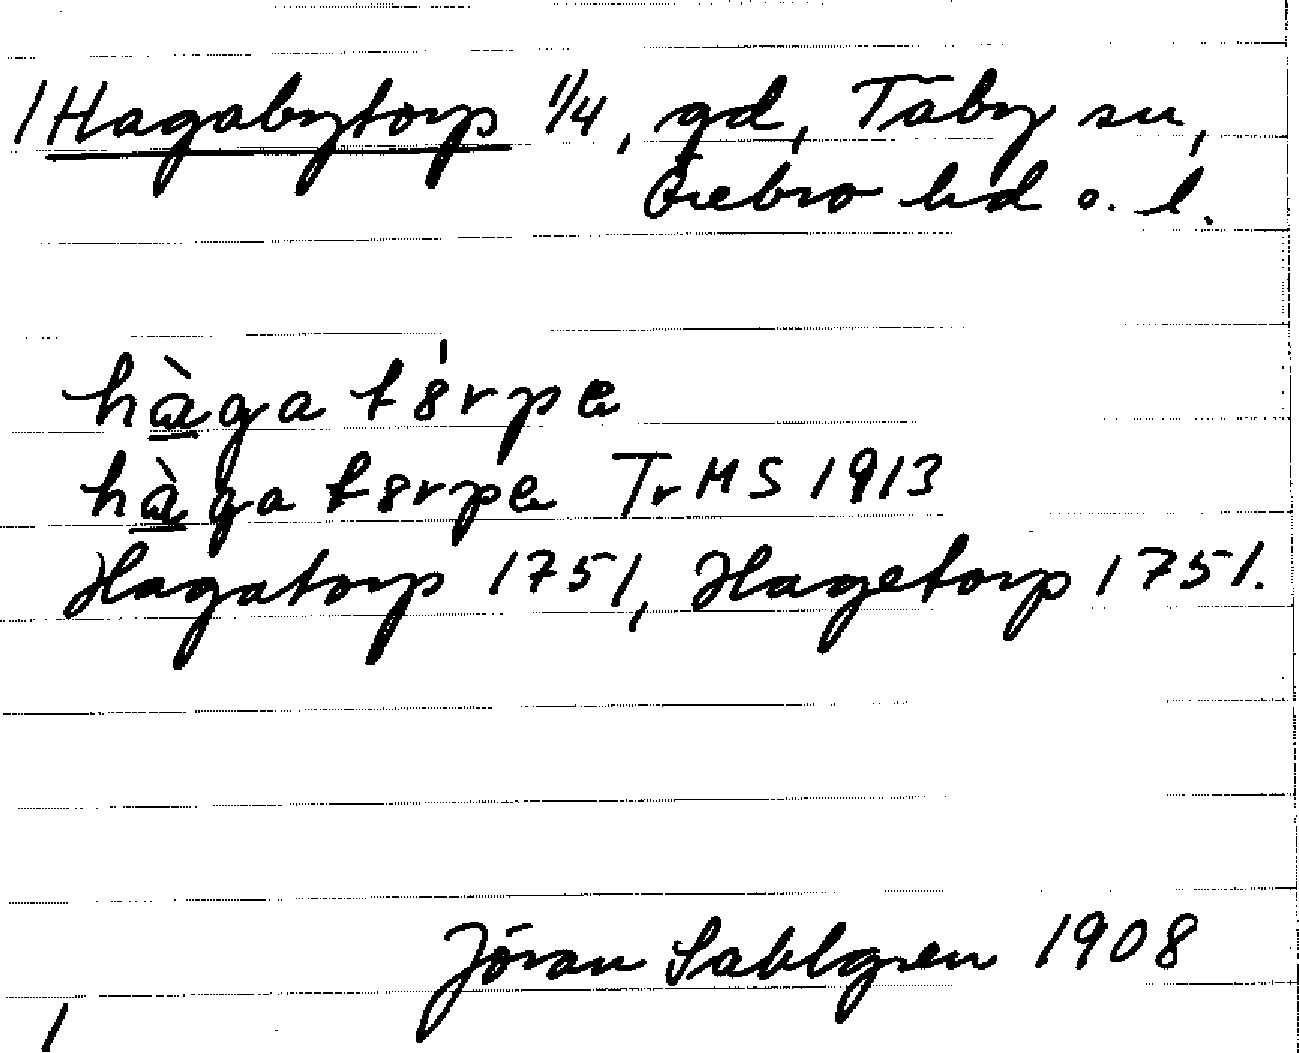 /Hagabytorp 1/4, gd, Täby sn,
Örebro hd o. l.
hàga tórpe
hàga torpe Tr MS 1913
Hagatorp 1751, Hagetorp 1751.
Jöran Sahlgren 1908
/